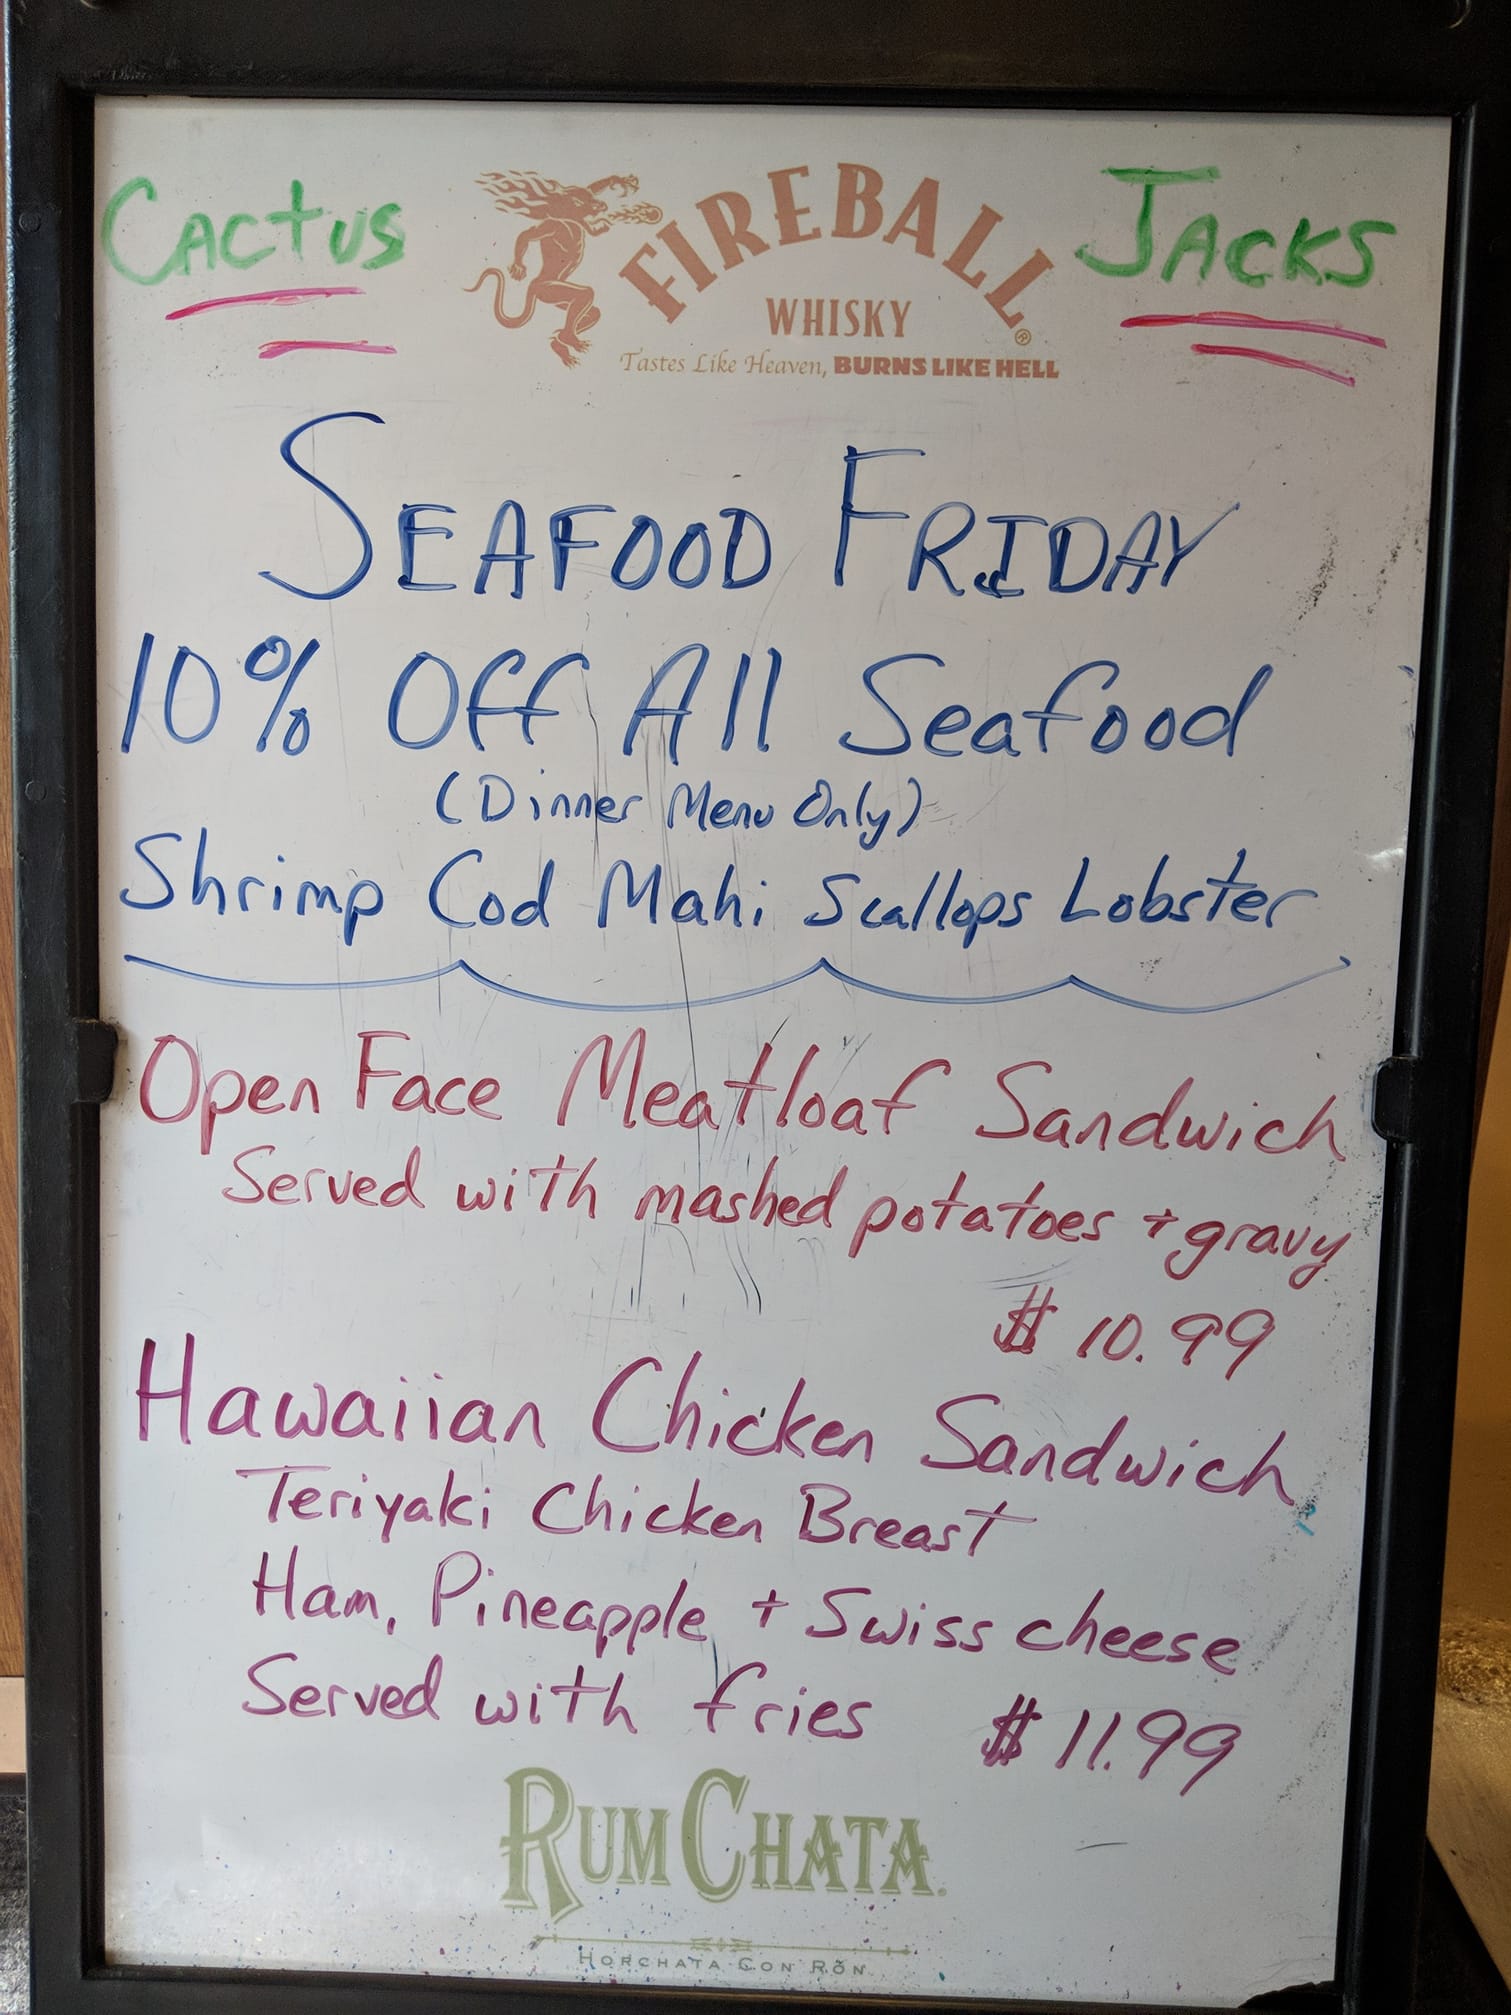 Cactus FIREBALL Jacks
WHISKY
Tastes Like Heaven, BURNS LIKE HELL
SEAFOOD FRIDAY
10% Off All Seafood
(Dinner Menu Only)
Shrimp Cod Mahi Scallops Lobster
Open Face Meatloaf Sandwich
Served with mashed potatoes + gravy
$10.99
Hawaiian Chicken Sandwich
Teriyaki Chicken Breast
Ham, Pineapple + Swiss cheese
Served with fries $11.99
RUMCHATA
HORCHATA CON RŎN